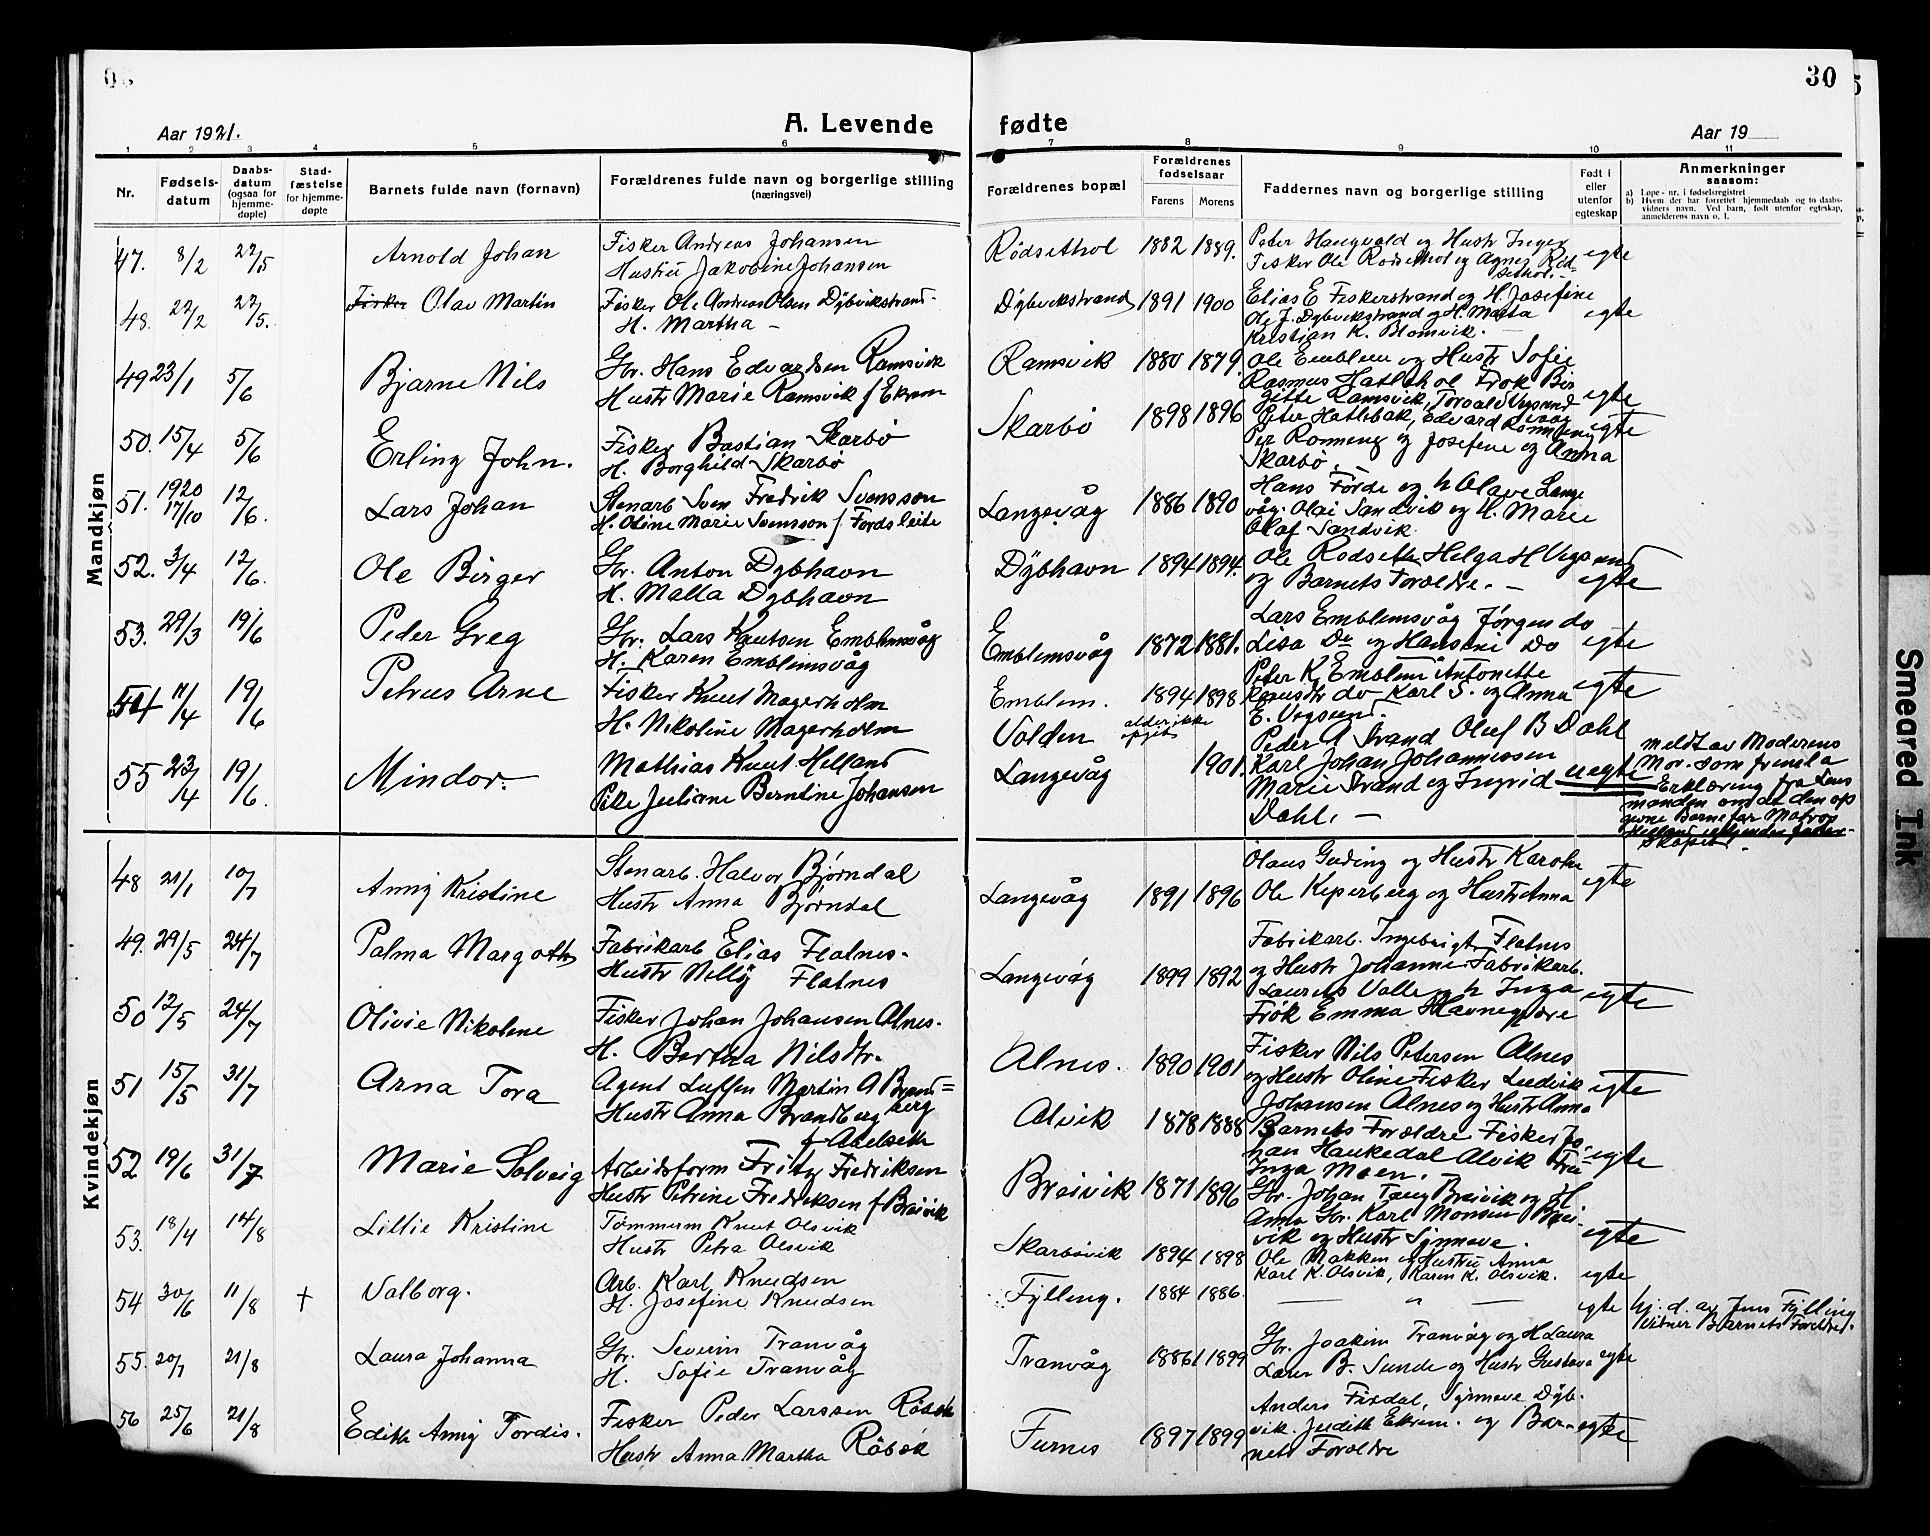 30
Aar 1921.
A. Levende fødte
Aar 19
1 2 3 4 5 6 7 8 9 10 11
Nr.
Fødsels-datum
Daabs-datum (ogsaa for hjemme-døpte)
Stad-fæstelse for hjemme-døpte
Barnets fulde navn (fornavn)
Forældrenes fulde navn og borgerlige stilling (næringsvei)
Forældrenes bopæl
Forældrenes fødselsaar
Farens Morens
Faddernes navn og borgerlige stilling
Født i eller utenfor egteskap
Anmerkninger saasom:
a) Løpe-nr. i fødselsregistret
b) Hvem der har forrettet hjemmedaab og to daabs-vidners navn. Ved barn, født utenfor egteskap, anmelderens navn o. l.
Mandkjøn
47. 8/2 22/5 Arnold Johan
Fisker Andreas Johansen
Hustru Jakobine Johansen
Rødsethol 1882 1889.
Peter Haugvald og Hustr Inger
Fisker Ole Rødsethol og Agnes Rød-
sethol.
egte
48. 22/2 22/5. Fisker Olav Martin
Fisker Ole Andreas Olsen Dybvikstrand.
H. Martha
Dybvikstrand 1891 1900
Elias E Fiskerstrand og H. Josefine
Ole J. Dybvikstrand og H. Marta
Kristian K. Blomvik.
egte
49 23/1 5/6 Bjarne Nils
Gbr. Hans Edvardsen Ramsvik
Hustr Marie Ramsvik f Ekrem
Ramsvik 1880 1879.
Ole Emblem og Hustr Sofie
Rasmus Hatlehol Frøk Bir
gitte Ramsvik, Toralv Vegsund
egte
50. 15/4 5/6 Erling John.
Fisker Bastian Skarbø
H. Borghild Skarbø
Skarbø 1898 1896
Peter Hatlebak, Edvard Rønneng
Per Rønneng og Josefine og Anna
Skarbø.
egte
51. 1920 17/10 12/6. Lars Johan
Stenarb Sven Fredrik Svensson
H. Oline Marie Svensson f. Fordsleite
Langevåg 1886 1890
Hans Førde og h Olave Lange
våg. Olai Sandvik og H. Marie
Olaf Sandvik
52. 3/4 12/6. Ole Birger
Gbr. Anton Dybhavn
H. Malla Dybhavn
Dybhavn 1894 1894.
Ole Rødseth Helga H Vegsund
og Barnets Forældre.
egte
53. 29/3 19/6 Peder Greg
Gbr. Lars Knutsen Emblemsvåg
H. Karen Emblemsvåg
Emblemsvåg 1872 1881.
Lars Emblemsvåg Jørgen do
Lisa Do og Hansine Do
egte
54 11/4 19/6 Petrus Arne
Fisker Knut Magerholm
H. Nikoline Magerholm
Emblem. 1894 1898
Peter K. Emblem Antonette
do Karl S. og Anna
E. Vegsund.
egte
55 23/4 19/6. Mindor.
Mathias Knut Helland
Pike Juliane Berntine Johansen
Volden alder ikke opgit
Langevåg 1901.
Peder A Strand Oluf B Dahl
Karl Johan Johannessen
Marie Strand og Ingrid
Dahl.
uegte
meldt av Moderens
Mor. som fremla
Erklæring fra Lens
manden om at den op
givne Barnefar
Helland vedkjender fader-
skapet.
Kvindekjøn
48 21/1 10/7 Anny Kristine
Stenarb. Halvor Bjørndal
Hustr Anna Bjørndal
Langevåg 1891 1896
Olaus Guding og Hustr Karoline
Ole Keperberg og Hustr Anna
egte
49. 29/5 24/7 Palma Margoth
Fabrikarb Elias Flatnes.
Hustr Nelly Flatnes
Langevåg 1899 1892
Fabrikarb. Ingebrigt Flatnes
og Hustr Johanne Fabrikarb.
Laurits Valle og h Inga
Frøk Emma Havnegjære
egte
50 12/5 24/7 Olivie Nikoline
Fisker Johan Johansen Alnes.
H. Bertha Nilsdtr.
Alnes. 1890 1901
Fisker Nils Petersen Alnes
og Hustr Oline Fisker Ludvik
Johansen Alnes og Hustr Anna
egte
51 15/5 31/7 Arna Tora
Agent Luffsen Martin A Brand=
berg
Hustr Anna Brandberg
f Aalseth
Alvik 1878 1888
Barnets Forældre Fisker Jo-
han Haukedal Alvik Fru
Inga Moen.
egte
52 19/6 31/7 Marie Solveig
Arbeidsform Fritz Fredriksen
Hustr Petrine Fredriksen f Breivik
Breivik 1871 1896
Gbr. Johan Tang Breivik og H
Anna Gbr. Karl Monsen Brei-
vik og Hustr Synneve.
egte
53. 18/4 14/8 Lillie Kristine
Tømmerm Knut Olsvik
Hustr Petra Olsvik
Skarbøvik 1894 1898
Ole Makken og Hustru Anna
Karl K. Olsvik, Karen K. Olsvik.
egte
54 30/6 11/8 † Valborg.
Arb. Karl Knudsen
H. Josefine Knudsen
Fylling. 1884 1886.
— " —
egte
hj. d. av Jens Fylling
Vitner Barnets Foreldre.
55. 20/7 21/8 Laura Johanna
Gbr. Severin Tranvåg
H. Sofie Tranvåg
Tranvåg 1886 1899
Gbr. Joakim Tranvåg og H Laura
Laur B. Sunde og Hustr Gustava
egte
56 25/6 21/8 Edith Anny Tordis.
Fisker Peder Larssen Røbek
Hustr Anna Martha Røbek
Furnes 1897 1899
Anders Fisdal, Synneve Dyb-
vik. Judith Ekrem. og Bar-
nets Forældre
egte
Smeared Ink